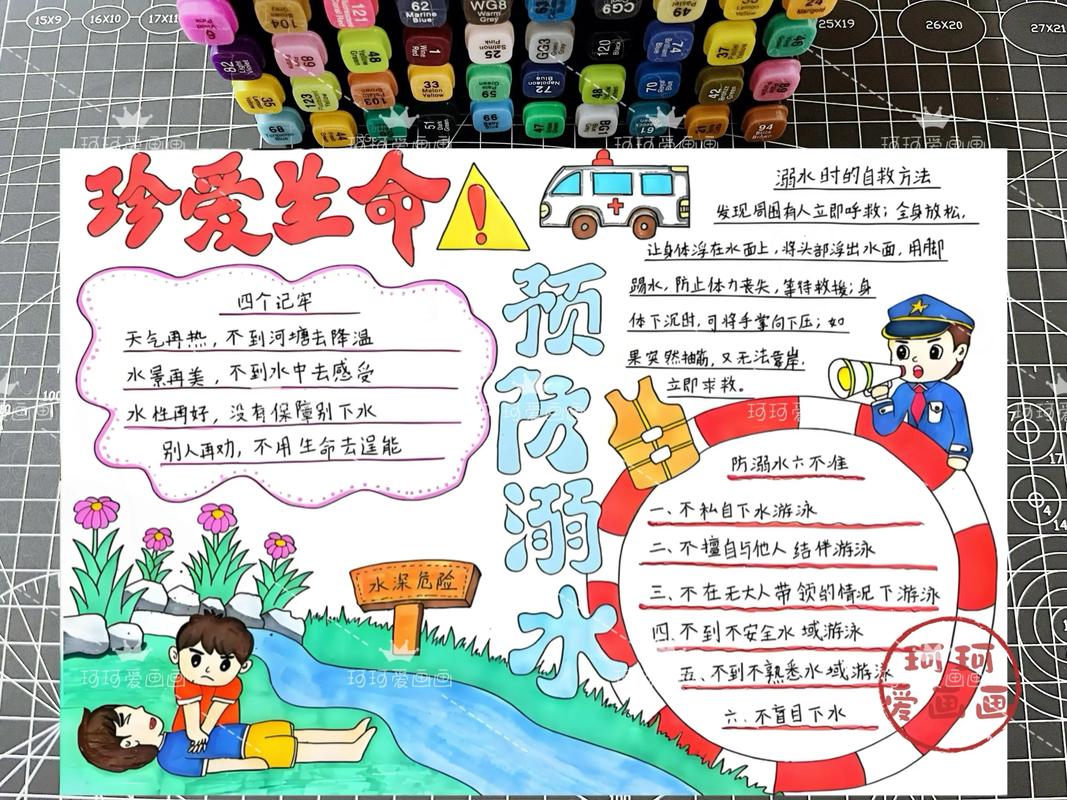 珍爱生命
预防溺水
溺水时的自救方法
发现周围有人立即呼救；全身放松，
让身体浮在水面上，将头部浮出水面，用脚
踢水，防止体力丧失，等待救援；身
体下沉时，可将手掌向下压；如
果突然抽筋，又无法靠岸，
立即求救。
四个记牢
天气再热，不到河塘去降温
水景再美，不到水中去感受
水性再好，没有保障别下水
别人再劝，不用生命去逞能
水深危险
防溺水六不准
一、不私自下水游泳
二、不擅自与他人结伴游泳
三、不在无大人带领的情况下游泳
四、不到不安全水域游泳
五、不到不熟悉水域游泳
六、不盲目下水
珂珂
爱画画
珂珂爱画画
15X9
16X10
17X11
25X19
26X20
27X21
62
Marine Blue
WG8
Warm Grey
1
Wine Red
25
Salmon Pink
GG3
120
Black
33
Melon Yellow
59
72
Napoleon Blue
48
70
Royal Blue
42
37
103
123
104
121
69
47
BG5
61
94
51